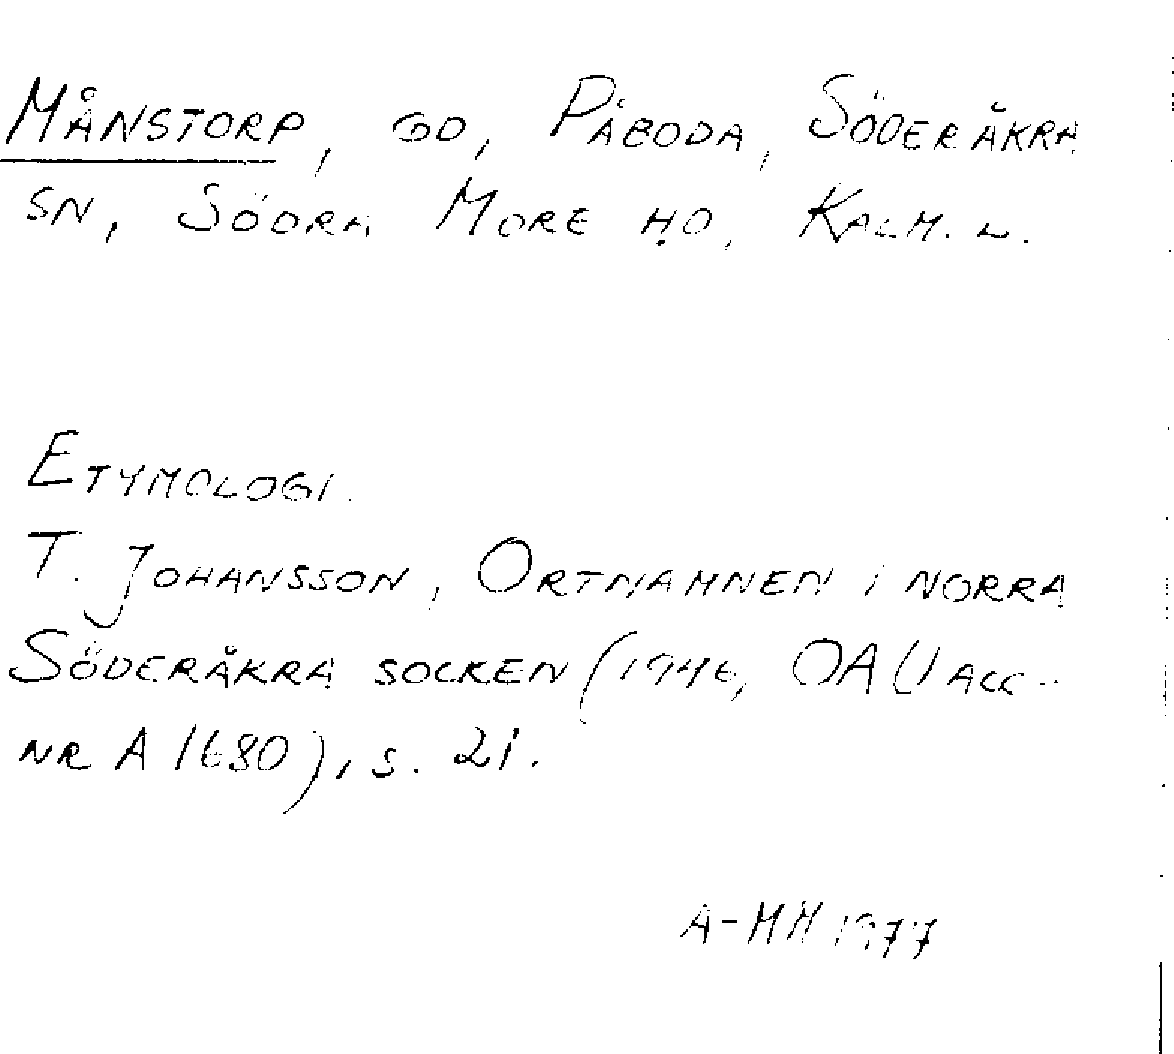 MÅNSTORP, GD, PÅBODA, SÖDERÅKRA
SN, SÖDRA MÖRE HD, KALM. L.
ETYMOLOGI.
T. JOHANSSON, ORTNAMNEN I NORRA
SÖDERÅKRA SOCKEN (1946, OAU ACC.-
NR A 1680), S. 21.
A-MH 1977